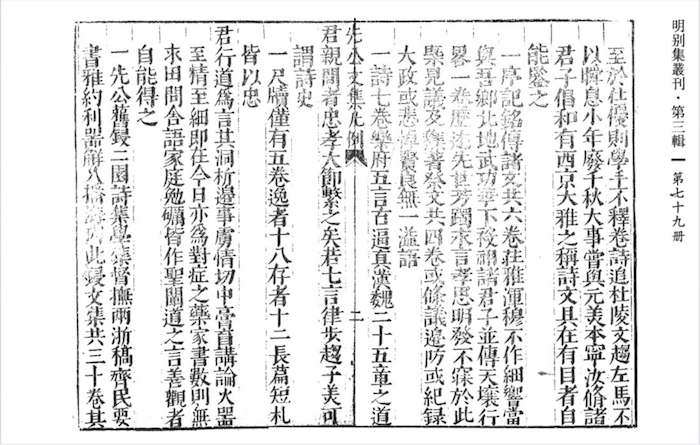 明別集叢刊·第三輯 — 第七十九册
至於仕優則學手不釋卷詩追杜陵文趨左馬不
以瞬息小年廢千秋大事嘗與元美本寧汝脩諸
君子倡和有西京大雅之稱詩文具在有目者自
能鑒之
一序記銘傳諸文共六卷莊雅渾穆不作細響當
與吾鄉北地武功華下諸君子並傳天壤行
畧一卷歷述先世芳躅永言孝思明發不寐於此
槩見議及雜著祭文共四卷或條議邊防或紀錄
大政或悲悼賢良無一溢語
一詩七卷樂府五言古逼真漢魏二十五章之道
先公文集凡例 二
君親聞者忠孝大節繫之矣若七言律步趨子美可
謂詩史
一尺牘僅有五卷逸者十八存者十二長篇短札
皆以忠
君行道為言其洞析邊事虜情切中膏肓講論火器
至情至細即在今日亦為對症之藥家書數則無
求田問舍語家庭勉礪皆作聖闢道之言善觀者
自能得之
一先公舊鋟二園詩集學集督撫兩浙稿齊民要
書雅約利器解八播此鋟文集共三十卷其